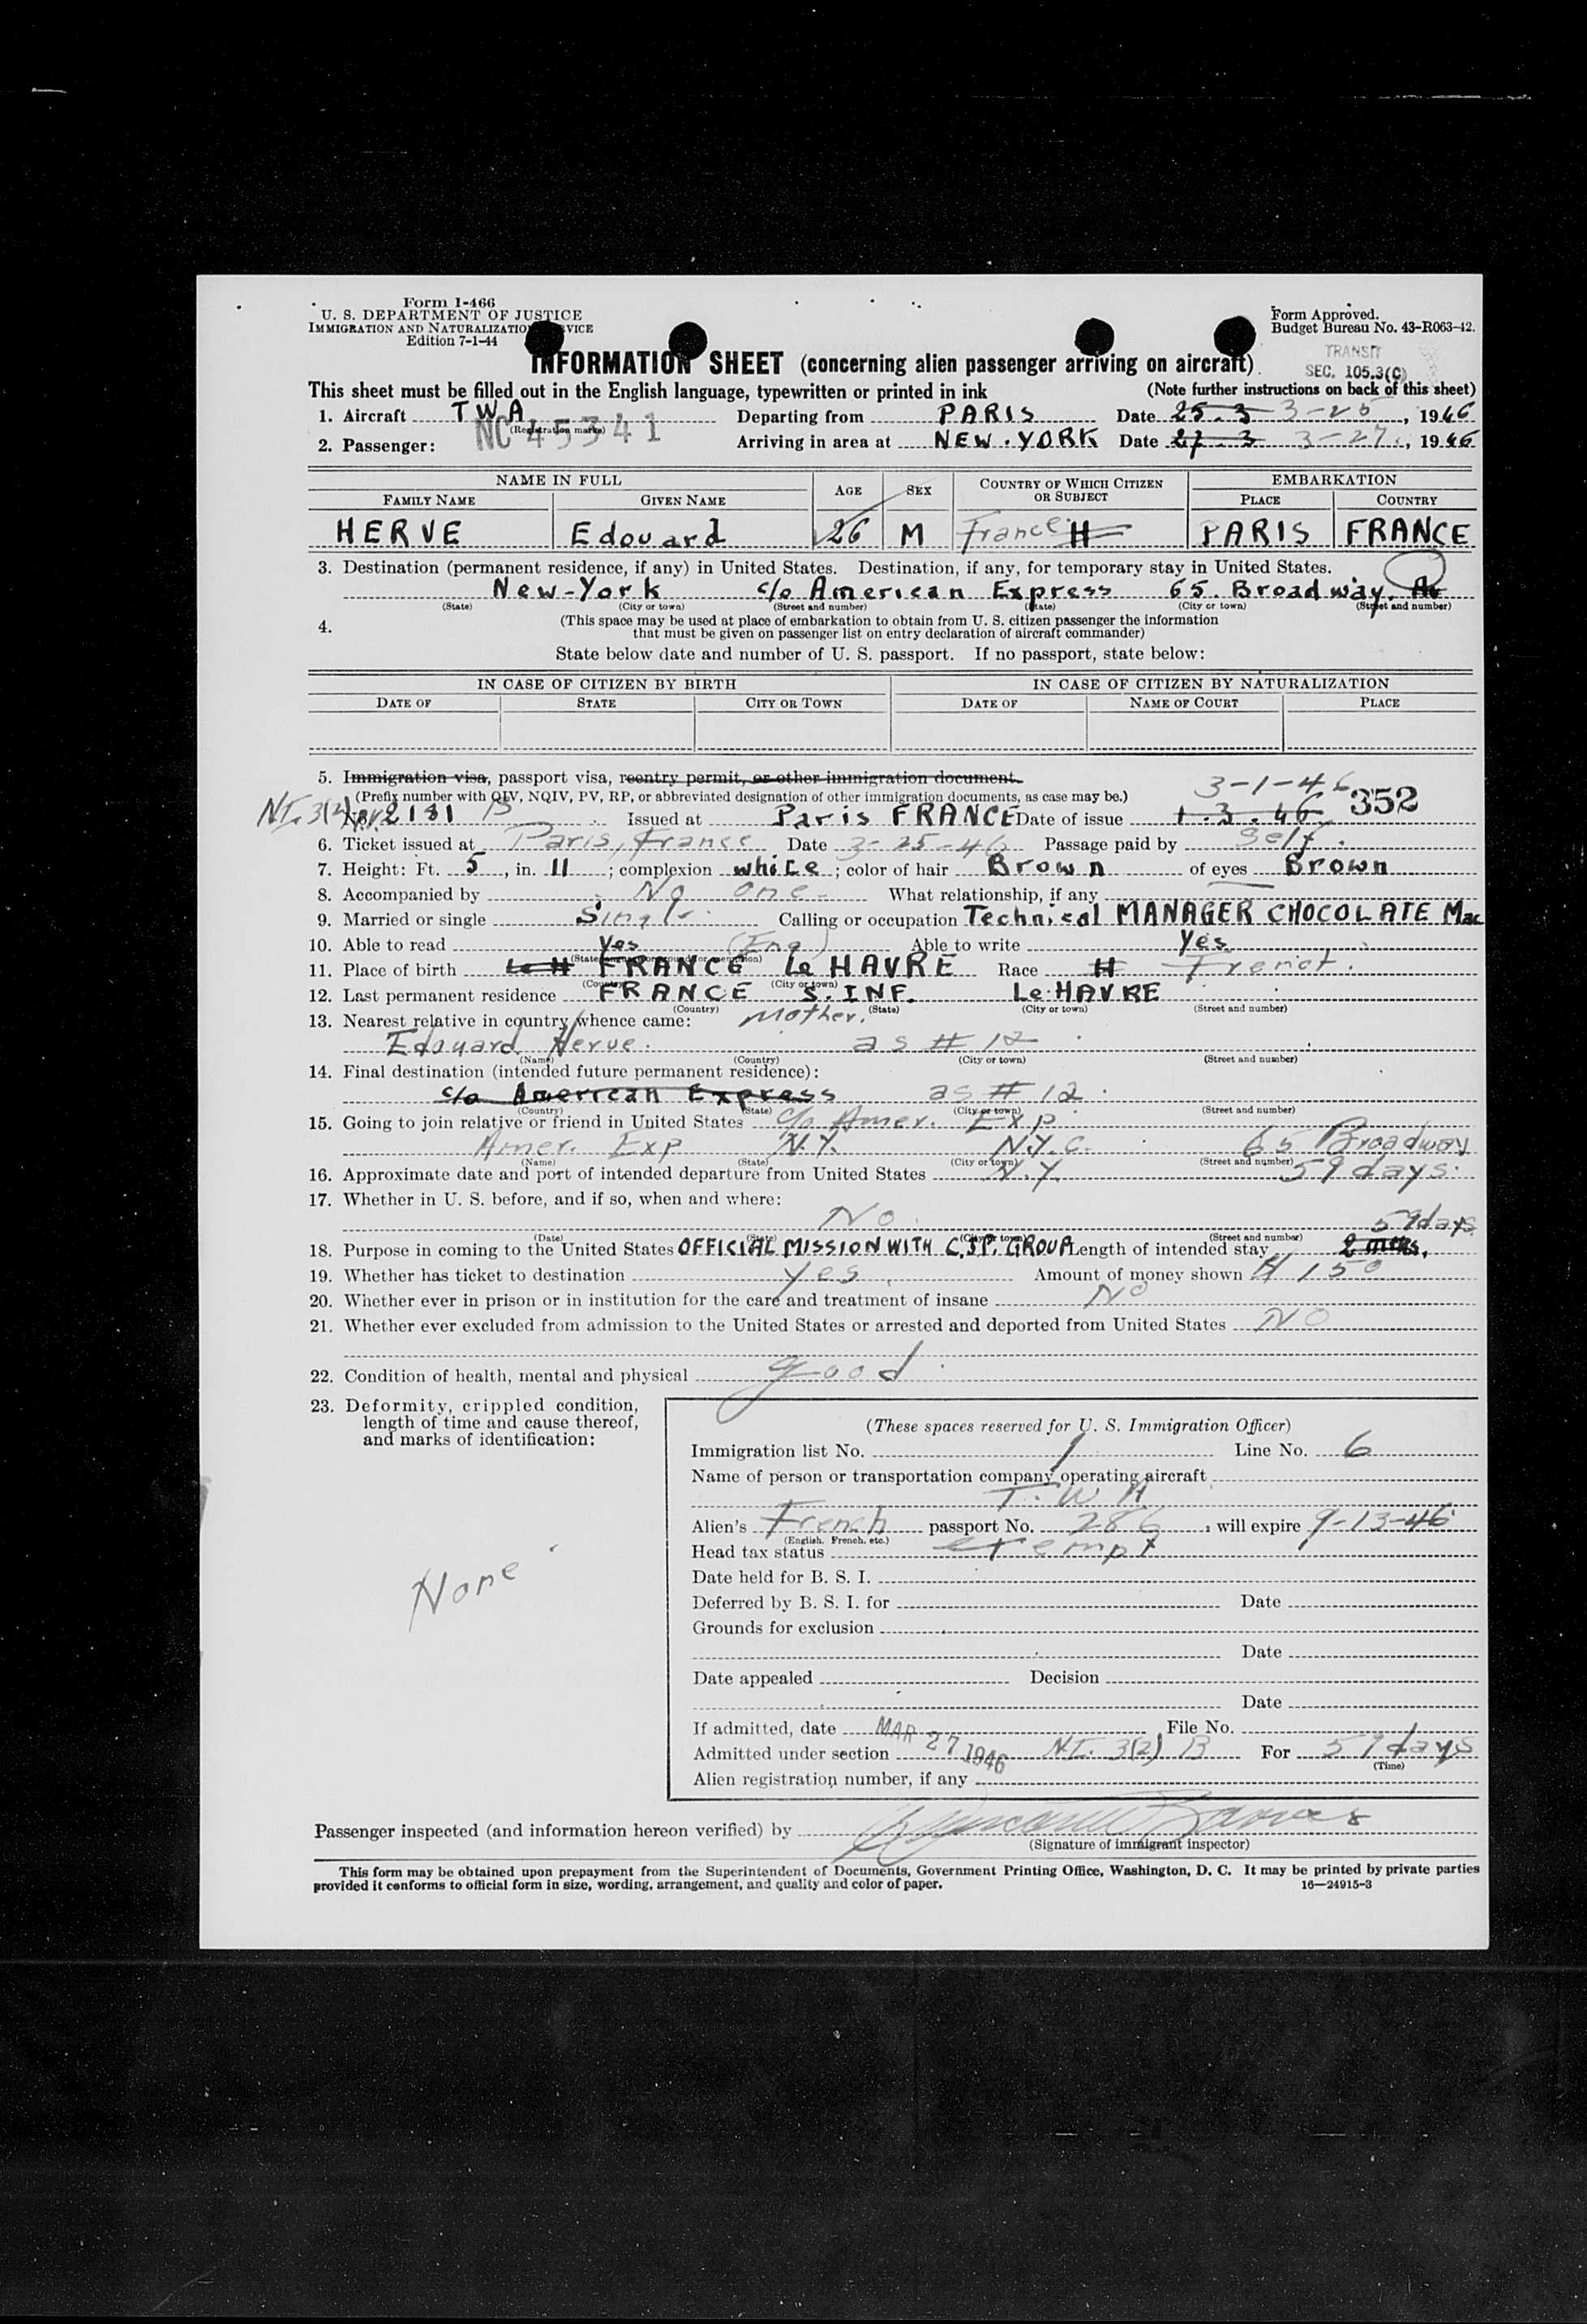 Form I-466
U. S. DEPARTMENT OF JUSTICE
IMMIGRATION AND NATURALIZATION SERVICE
Edition 7-1-44
Form Approved.
Budget Bureau No. 43-R063-42.
TRANSIT
SEC. 105.3(C)
INFORMATION SHEET (concerning alien passenger arriving on aircraft)
This sheet must be filled out in the English language, typewritten or printed in ink (Note further instructions on back of this sheet)
1. Aircraft TWA Departing from PARIS Date 25.3 3-25, 1946
(Registration marks)
NC 45341
2. Passenger: Arriving in area at NEW.YORK Date 27.3 3-27, 1946
NAME IN FULL AGE SEX COUNTRY OF WHICH CITIZEN OR SUBJECT EMBARKATION
FAMILY NAME GIVEN NAME PLACE COUNTRY
HERVE Edouard 26 M France H PARIS FRANCE
3. Destination (permanent residence, if any) in United States. Destination, if any, for temporary stay in United States.
New-York c/o American Express 65. Broadway.
(State) (City or town) (Street and number) (State) (City or town) (Street and number)
4. (This space may be used at place of embarkation to obtain from U. S. citizen passenger the information
that must be given on passenger list on entry declaration of aircraft commander)
State below date and number of U. S. passport. If no passport, state below:
IN CASE OF CITIZEN BY BIRTH IN CASE OF CITIZEN BY NATURALIZATION
DATE OF STATE CITY OR TOWN DATE OF NAME OF COURT PLACE
5. Immigration visa, passport visa, reentry permit, or other immigration document.
(Prefix number with QIV, NQIV, PV, RP, or abbreviated designation of other immigration documents, as case may be.) 3-1-46 352
N.I. 3(2) B 2181 Issued at Paris FRANCE Date of issue 1.3.46
6. Ticket issued at Paris, France Date 3-25-46 Passage paid by Self.
7. Height: Ft. 5, in. 11; complexion white; color of hair Brown of eyes Brown
8. Accompanied by No one What relationship, if any
9. Married or single Single Calling or occupation Technical MANAGER CHOCOLATE Mac
10. Able to read Yes (Eng) Able to write Yes
11. Place of birth Le H FRANCE Le HAVRE Race H French.
(Country) (City or town)
12. Last permanent residence FRANCE S. INF. Le HAVRE
(Country) (State) (City or town) (Street and number)
13. Nearest relative in country whence came: Mother.
Edouard Herve. as # 12
(Name) (Country) (City or town) (Street and number)
14. Final destination (intended future permanent residence):
c/o American Express as # 12
(Country) (State) (City or town) (Street and number)
15. Going to join relative or friend in United States c/o Amer. Exp
Amer. Exp N.Y. N.Y.C. 65 Broadway
(Name) (State) (City or town) (Street and number)
16. Approximate date and port of intended departure from United States N.Y. 59 days.
17. Whether in U. S. before, and if so, when and where:
No 59 days
(Date) (State) (City or town) (Street and number)
18. Purpose in coming to the United States OFFICIAL MISSION WITH C.S.P. GROUP Length of intended stay
19. Whether has ticket to destination Yes Amount of money shown 150
20. Whether ever in prison or in institution for the care and treatment of insane No
21. Whether ever excluded from admission to the United States or arrested and deported from United States No
22. Condition of health, mental and physical good
23. Deformity, crippled condition,
length of time and cause thereof,
and marks of identification:
None
(These spaces reserved for U. S. Immigration Officer)
Immigration list No. 1 Line No. 6
Name of person or transportation company operating aircraft
T.W.A
Alien's French passport No. 286, will expire 9-13-46
(English. French. etc.)
Head tax status exempt
Date held for B. S. I.
Deferred by B. S. I. for Date
Grounds for exclusion
Date
Date appealed Decision
Date
If admitted, date MAR 27 1946 File No.
Admitted under section N.I. 3(2) B For 59 days
(Time)
Alien registration number, if any
Passenger inspected (and information hereon verified) by
(Signature of immigrant inspector)
This form may be obtained upon prepayment from the Superintendent of Documents, Government Printing Office, Washington, D. C. It may be printed by private parties
provided it conforms to official form in size, wording, arrangement, and quality and color of paper. 16—24915-3